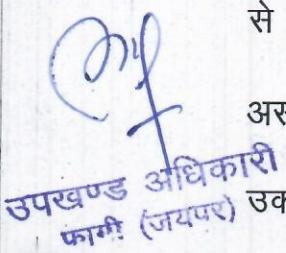 से
अस
उपखण्ड अधिकारी
फागी (जयपुर) उक